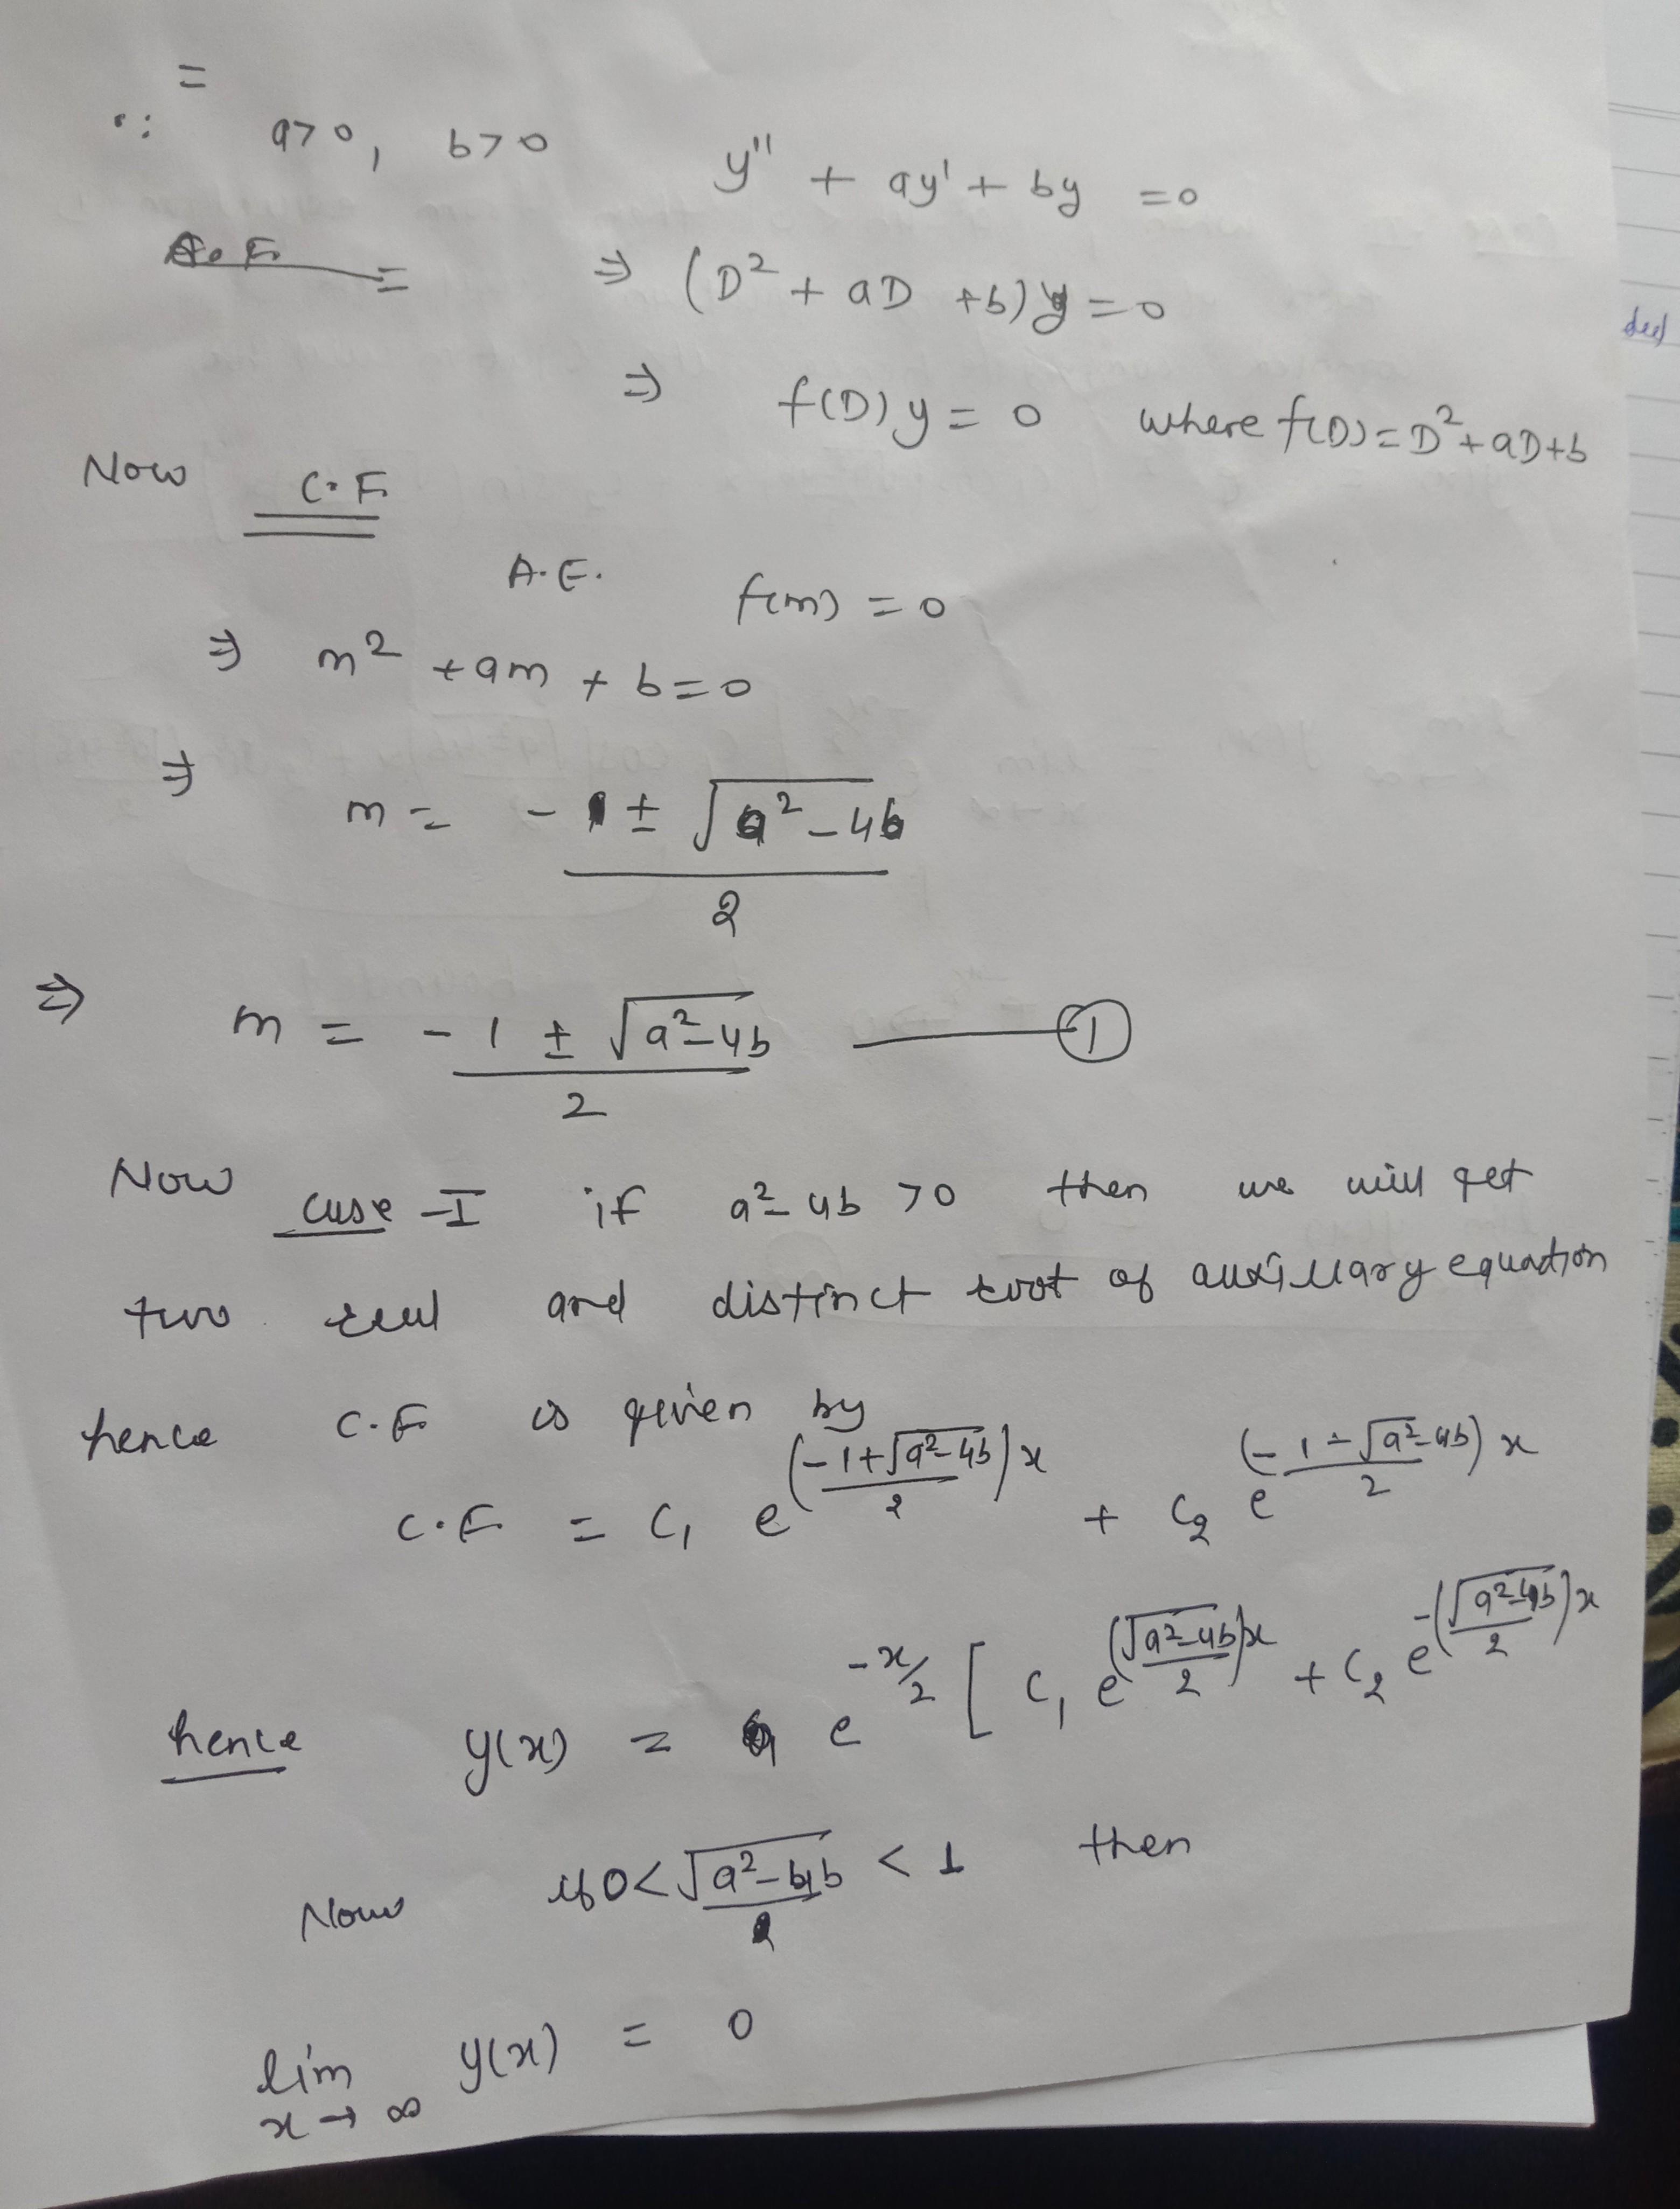 =
∵ a>0, b>0 y'' + ay' + by = 0
⇒ (D² + aD + b)y = 0
⇒ f(D)y = 0 where f(D) = D² + aD + b
Now C.F
A.E. f(m) = 0
⇒ m² + am + b = 0
⇒ m = (-1 ± √(a²-4b))/2
⇒ m = (-1 ± √(a²-4b))/2 ——— ①
Now case-I if a²-4b >0 then we will get
two real and distinct root of auxillary equation
hence C.F is given by
C.F = C₁ e^((-1+√(a²-4b))/2)x + C₂ e^((-1-√(a²-4b))/2)x
hence y(x) = e^(-x/2) [ C₁ e^(√(a²-4b)/2)x + C₂ e^-(√(a²-4b)/2)x
Now if 0 < √(a²-4b)/2 < 1 then
lim x→∞ y(x) = 0